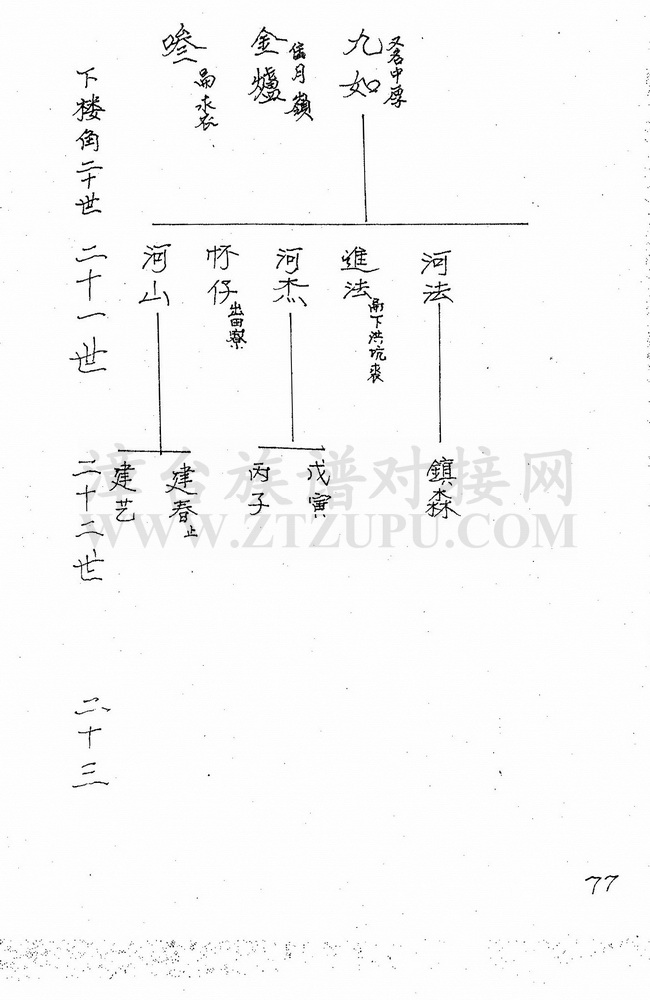 九如
又名中厚
金爐
住月嶺
下楼角二十世
河法
進法
下洪坑裘
河杰
怀仔
出田寮
河山
二十一世
鎮森
戊寅
丙子
建春止
建艺
二十二世
二十三
77
漳台族谱对接网
WWW.ZTZUPU.COM